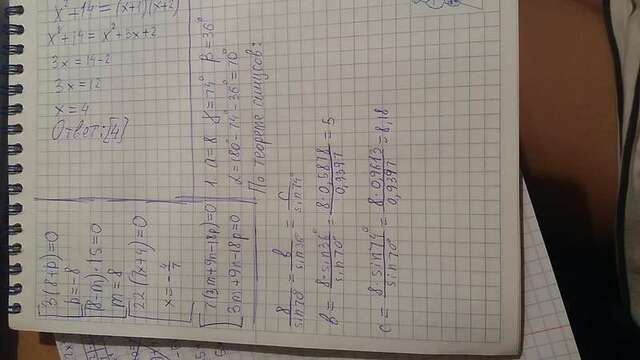 x²+14=(x+1)(x+2)
x²+14=x²+3x+2
3x=14-2
3x=12
x=4
Ответ:[4]
[3·(8+p)=0
p=-8
(8-m)·15=0
m=8
[22(7x+4)=0
x=-4/7
7(3m+9n-18p)=0
3m+9n-18p=0
1 a=8 γ=74° β=36°
α=180°-74°-36°=70°
По теореме синусов:
8/sin70° = b/sin36° = c/sin74°
b = 8·sin36°/sin70° = 8·0,5878/0,9397 = 5
c = 8·sin74°/sin70° = 8·0,9613/0,9397 = 8,18